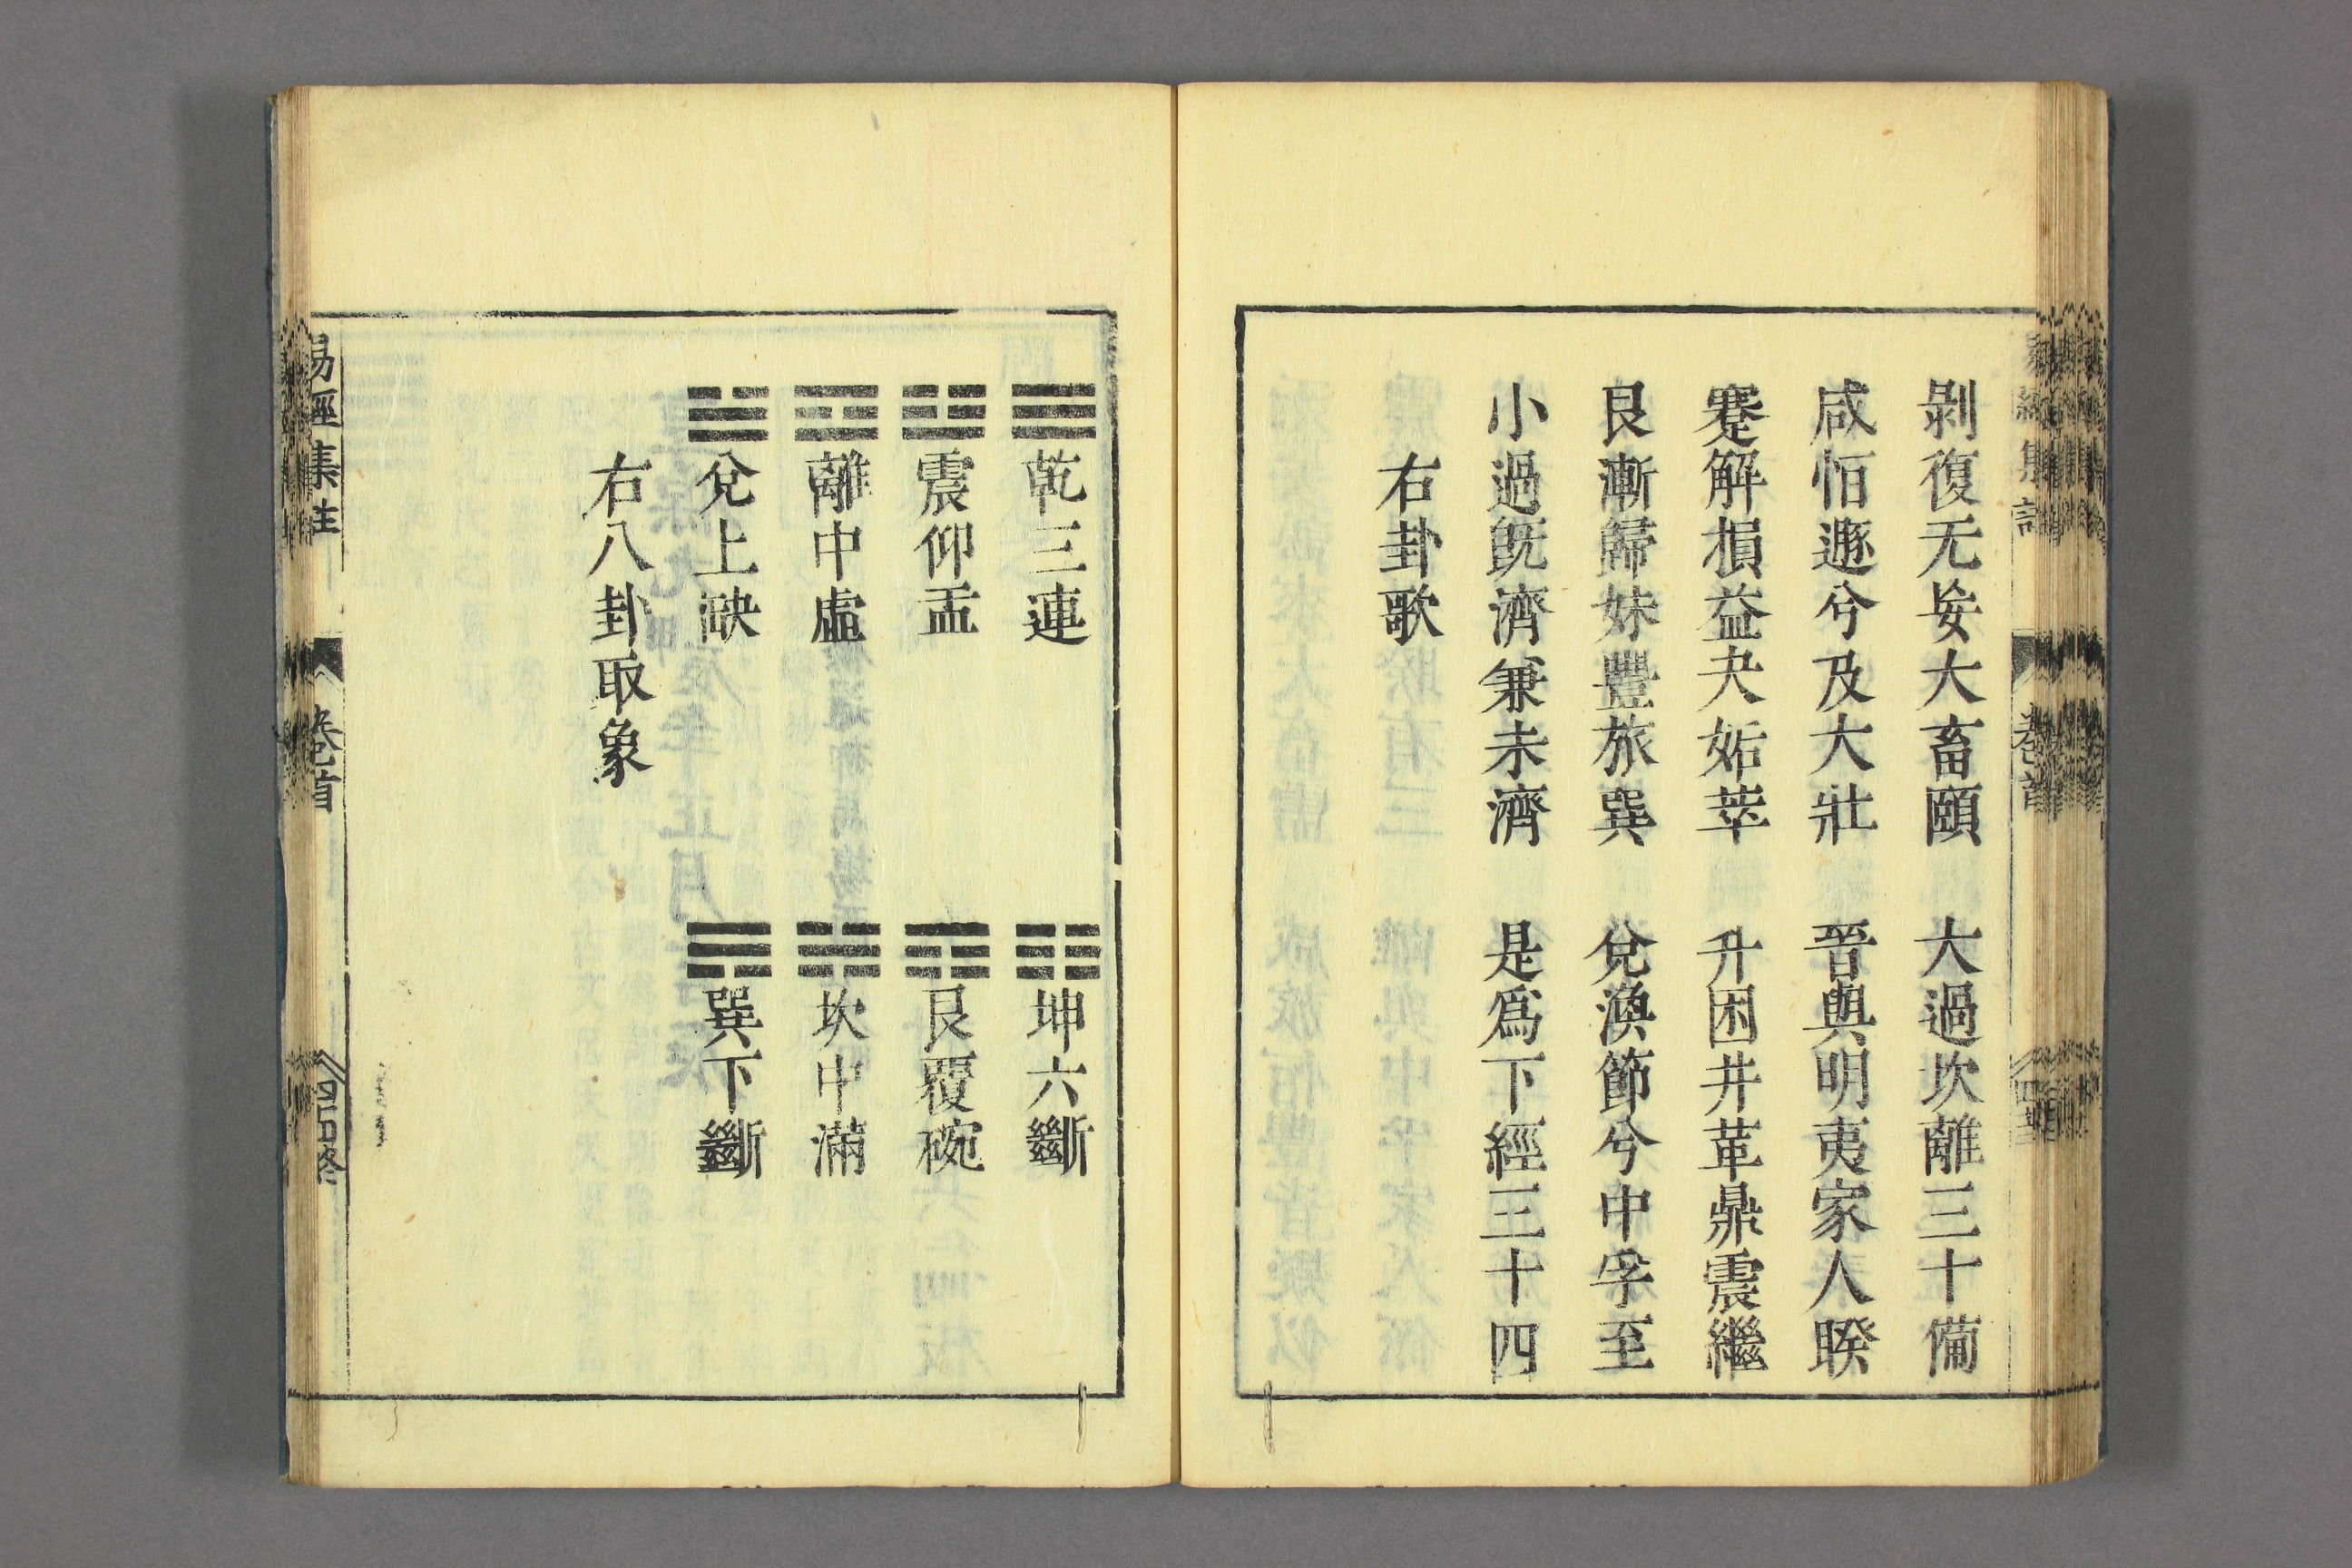 剝復无妄大畜頤　大過坎離三十備
咸恒遯兮及大壯　晉與明夷家人睽
蹇解損益夬姤萃　升困井革鼎震繼
艮漸歸妹豐旅巽　兌渙節兮中孚至
小過旣濟兼未濟　是爲下經三十四
右卦歌
☰乾三連　☷坤六斷
☳震仰盂　☶艮覆碗
☲離中虛　☵坎中滿
☱兌上缺　☴巽下斷
右八卦取象
易經集註　卷首